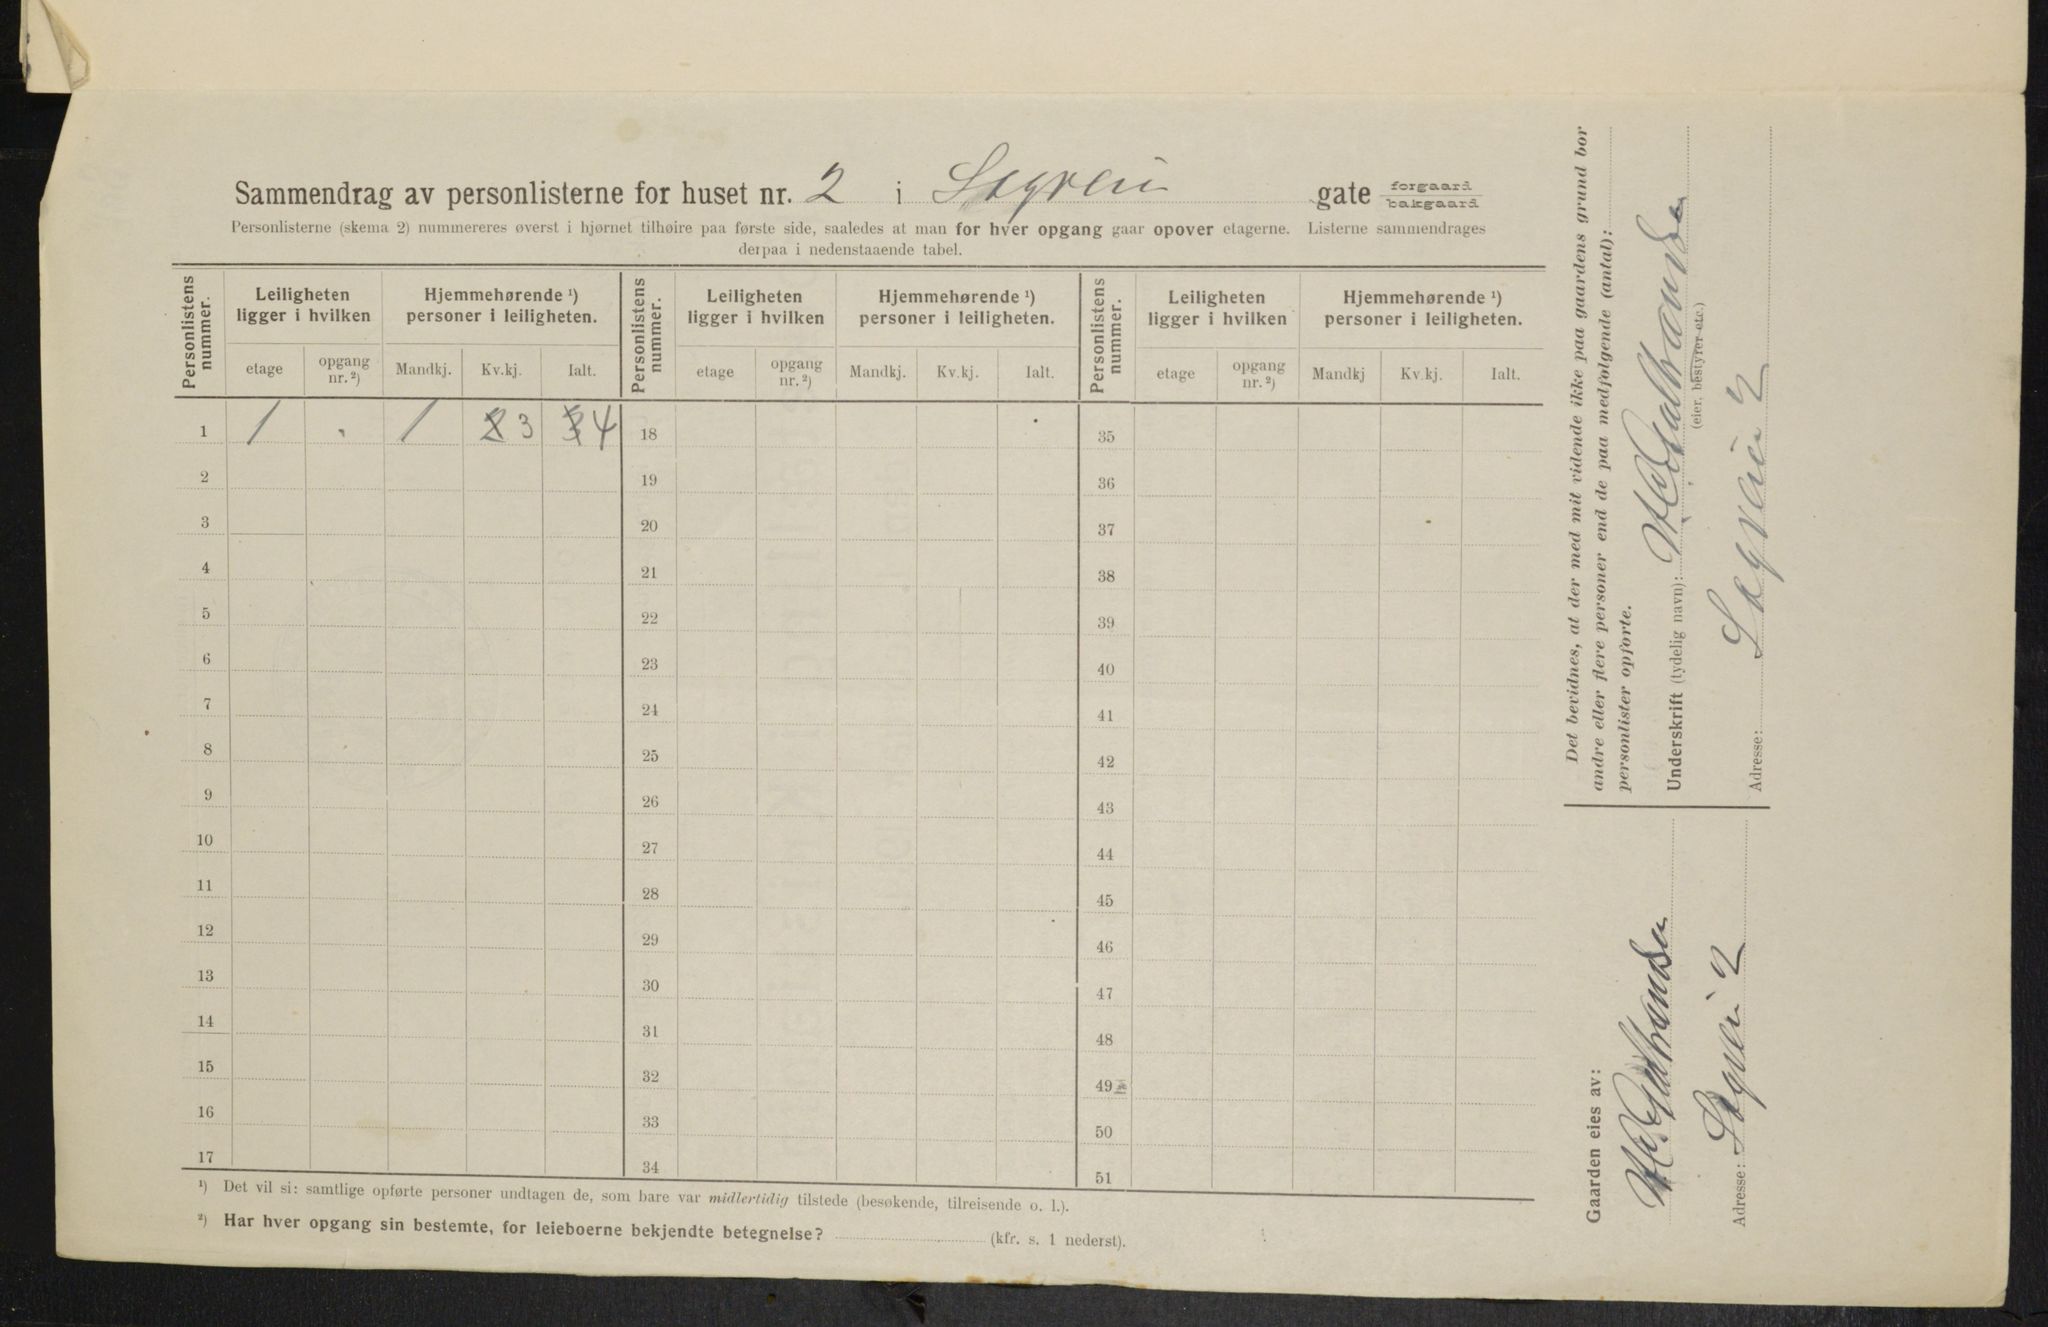 Sammendrag av personlisterne for huset nr. 2 i Sagveien gate forgaard bakgaard
Personlisterne (skema 2) nummereres øverst i hjørnet tilhøire paa første side, saaledes at man for hver opgang gaar opover etagerne. Listerne sammendrages
derpaa i nedenstaaende tabel.
Personlistens nummer. Leiligheten ligger i hvilken Hjemmehørende ¹) personer i leiligheten. Personlistens nummer. Leiligheten ligger i hvilken Hjemmehørende ¹) personer i leiligheten. Personlistens nummer. Leiligheten ligger i hvilken Hjemmehørende ¹) personer i leiligheten.
etage opgang nr. ²) Mandkj. Kv.kj. Ialt. etage opgang nr. ²) Mandkj. Kv.kj. Ialt. etage opgang nr. ²) Mandkj Kv.kj. Ialt.
1 1 1 2 3 3 4 18 35
2 19 36
3 20 37
4 21 38
5 22 39
6 23 40
7 24 41
8 25 42
9 26 43
10 27 44
11 28 45
12 29 46
13 30 47
14 31 48
15 32 49
16 33 50
17 34 51
¹) Det vil si: samtlige opførte personer undtagen de, som bare var midlertidig tilstede (besøkende, tilreisende o. l.).
²) Har hver opgang sin bestemte, for leieboerne bekjendte betegnelse? (kfr. s. 1 nederst).
Det bevidnes, at der med mit vidende ikke paa gaardens grund bor
andre eller flere personer end de paa medfølgende (antal):
personlister opførte.
Underskrift (tydelig navn):
(eier, bestyrer etc.)
Adresse: Sagveien 2
Gaarden eies av:
Adresse: Sagveien 2